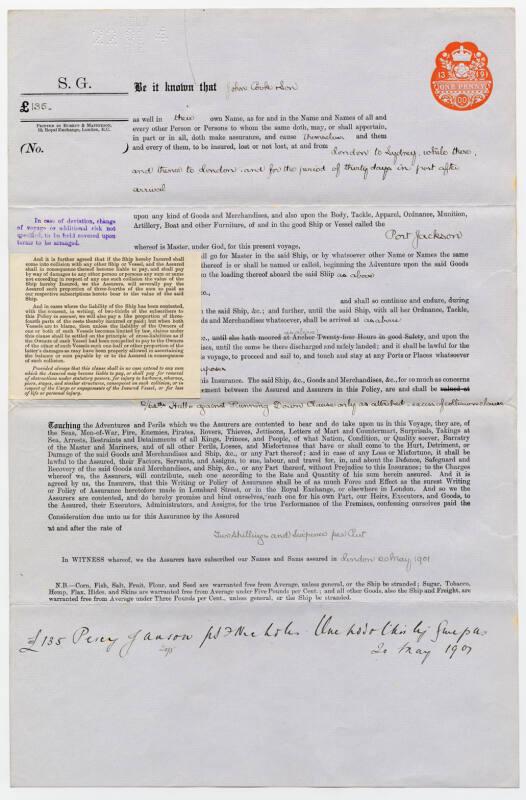 S. G.
£135.
PRINTED BY BURRUP & MATHIESON,
22, Royal Exchange, London, E.C.
(No. )
ONE PENNY
Be it known that John Cook & Son
as well in their own Name, as for and in the Name and Names of all and
every other Person or Persons to whom the same doth, may, or shall appertain,
in part or in all, doth make assurance, and cause themselves and them
and every of them, to be insured, lost or not lost, at and from
London to Sydney, while there,
and thence to London and for the period of thirty days in port after
arrival
In case of deviation, change
of voyage or additional risk not
specified, to be held covered upon
terms to be arranged.
upon any kind of Goods and Merchandises, and also upon the Body, Tackle, Apparel, Ordnance, Munition,
Artillery, Boat and other Furniture, of and in the good Ship or Vessel called the
Port Jackson
whereof is Master, under God, for this present voyage,
And it is further agreed that if the Ship hereby Insured shall
come into collision with any other Ship or Vessel, and the Assured
shall in consequence thereof become liable to pay, and shall pay
by way of damages to any other person or persons any sum or sums
not exceeding in respect of any one such collision the value of the
Ship hereby Insured, we the Assurers, will severally pay the
Assured such proportion of three-fourths of the sum so paid as
our respective subscriptions hereto bear to the value of the said
Ship.
And in cases where the liability of the Ship has been contested,
with the consent, in writing, of two-thirds of the subscribers to
this Policy in amount, we will also pay a like proportion of three-
fourth parts of the costs thereby incurred or paid; but when both
Vessels are to blame, then unless the liability of the Owners of
one or both of such Vessels becomes limited by law, claims under
this clause shall be settled on the principle of cross-liabilities as if
the Owners of each Vessel had been compelled to pay to the Owners
of the other of such Vessels such one-half or other proportion of the
latter's damages as may have been properly allowed in ascertaining
the balance or sum payable by or to the Assured in consequence
of such collision.
Provided always that this clause shall in no case extend to any sum
which the Assured may become liable to pay, or shall pay for removal
of obstructions under statutory powers, for injury to harbours, wharves,
piers, stages, and similar structures, consequent on such collision, or in
respect of the Cargo or engagements of the Insured Vessel, or for loss
of life or personal injury.
all go for Master in the said Ship, or by whatsoever other Name or Names the same
thereof is or shall be named or called, beginning the Adventure upon the said Goods
the loading thereof aboard the said Ship as above
&c.,
and shall so continue and endure, during
the said Ship, &c.; and further, until the said Ship, with all her Ordnance, Tackle,
ds and Merchandises whatsoever, shall be arrived at as above
&c., until she hath moored at Anchor Twenty-four Hours in good Safety, and upon the
ises, until the same be there discharged and safely landed; and it shall be lawful for the
voyage, to proceed and sail to, and touch and stay at any Ports or Places whatsoever
this Insurance. The said Ship, &c., Goods and Merchandises, &c., for so much as concerns
ement between the Assured and Assurers in this Policy, are and shall be valued at
Hull against Running Down Clause only as attached
Touching the Adventures and Perils which we the Assurers are contented to bear and do take upon us in this Voyage, they are, of
the Seas, Men-of-War, Fire, Enemies, Pirates, Rovers, Thieves, Jettisons, Letters of Mart and Countermart, Surprisals, Takings at
Sea, Arrests, Restraints and Detainments of all Kings, Princes, and People, of what Nation, Condition, or Quality soever, Barratry
of the Master and Mariners, and of all other Perils, Losses, and Misfortunes that have or shall come to the Hurt, Detriment, or
Damage of the said Goods and Merchandises and Ship, &c., or any Part thereof; and in case of any Loss or Misfortune, it shall be
lawful to the Assured, their Factors, Servants, and Assigns, to sue, labour, and travel for, in, and about the Defence, Safeguard and
Recovery of the said Goods and Merchandises, and Ship, &c., or any Part thereof, without Prejudice to this Insurance; to the Charges
whereof we, the Assurers, will contribute, each one according to the Rate and Quantity of his sum herein assured. And it is
agreed by us, the Insurers, that this Writing or Policy of Assurance shall be of as much Force and Effect as the surest Writing
or Policy of Assurance heretofore made in Lombard Street, or in the Royal Exchange, or elsewhere in London. And so we the
Assurers are contented, and do hereby promise and bind ourselves, each one for his own Part, our Heirs, Executors, and Goods, to
the Assured, their Executors, Administrators, and Assigns, for the true Performance of the Premises, confessing ourselves paid the
Consideration due unto us for this Assurance by the Assured
at and after the rate of
Two Shillings and Sixpence per Cent
In WITNESS whereof, we the Assurers have subscribed our Names and Sums assured in London 20 May 1901
N.B.—Corn, Fish, Salt, Fruit, Flour, and Seed are warranted free from Average, unless general, or the Ship be stranded; Sugar, Tobacco,
Hemp, Flax, Hides, and Skins are warranted free from Average under Five Pounds per Cent.; and all other Goods, also the Ship and Freight, are
warranted free from Average under Three Pounds per Cent., unless general, or the Ship be stranded.
£135 Percy Janson
20 May 1901